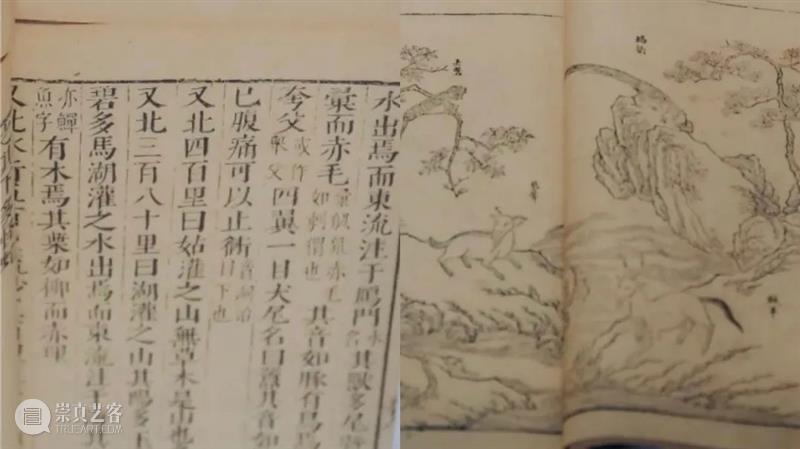 水出焉而東流注于鴈門水名其獸多居
彙而赤毛彙似鼠赤毛如刺猬也其音如豚有鳥焉
夸父或作舉父四翼一目犬尾名曰囂其音如
已腹痛可以止衕音洞治下也
又北四百里曰姑灌之山無草木是山也
又北三百八十里曰湖灌之山其陽多玉
碧多馬湖灌之水出焉而東流注
亦鱓魚字有木焉其葉如柳而赤理
又北水行
崇真艺客
TRUEART.COM